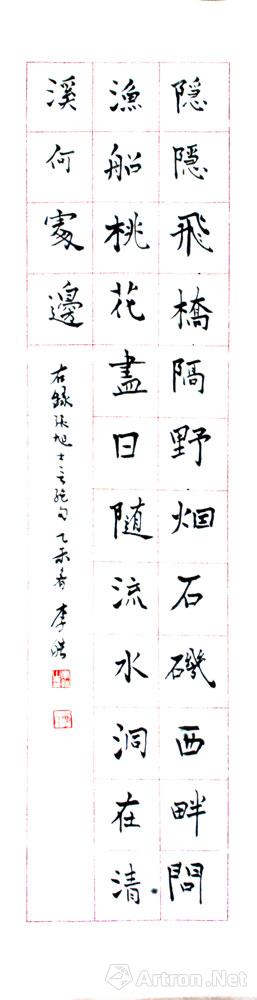 隐隱飛橋隔野烟石磯西畔問
漁船桃花盡日随流水洞在清
溪何處邊
右録張旭七言絶句乙未春李皓
Artron.Net